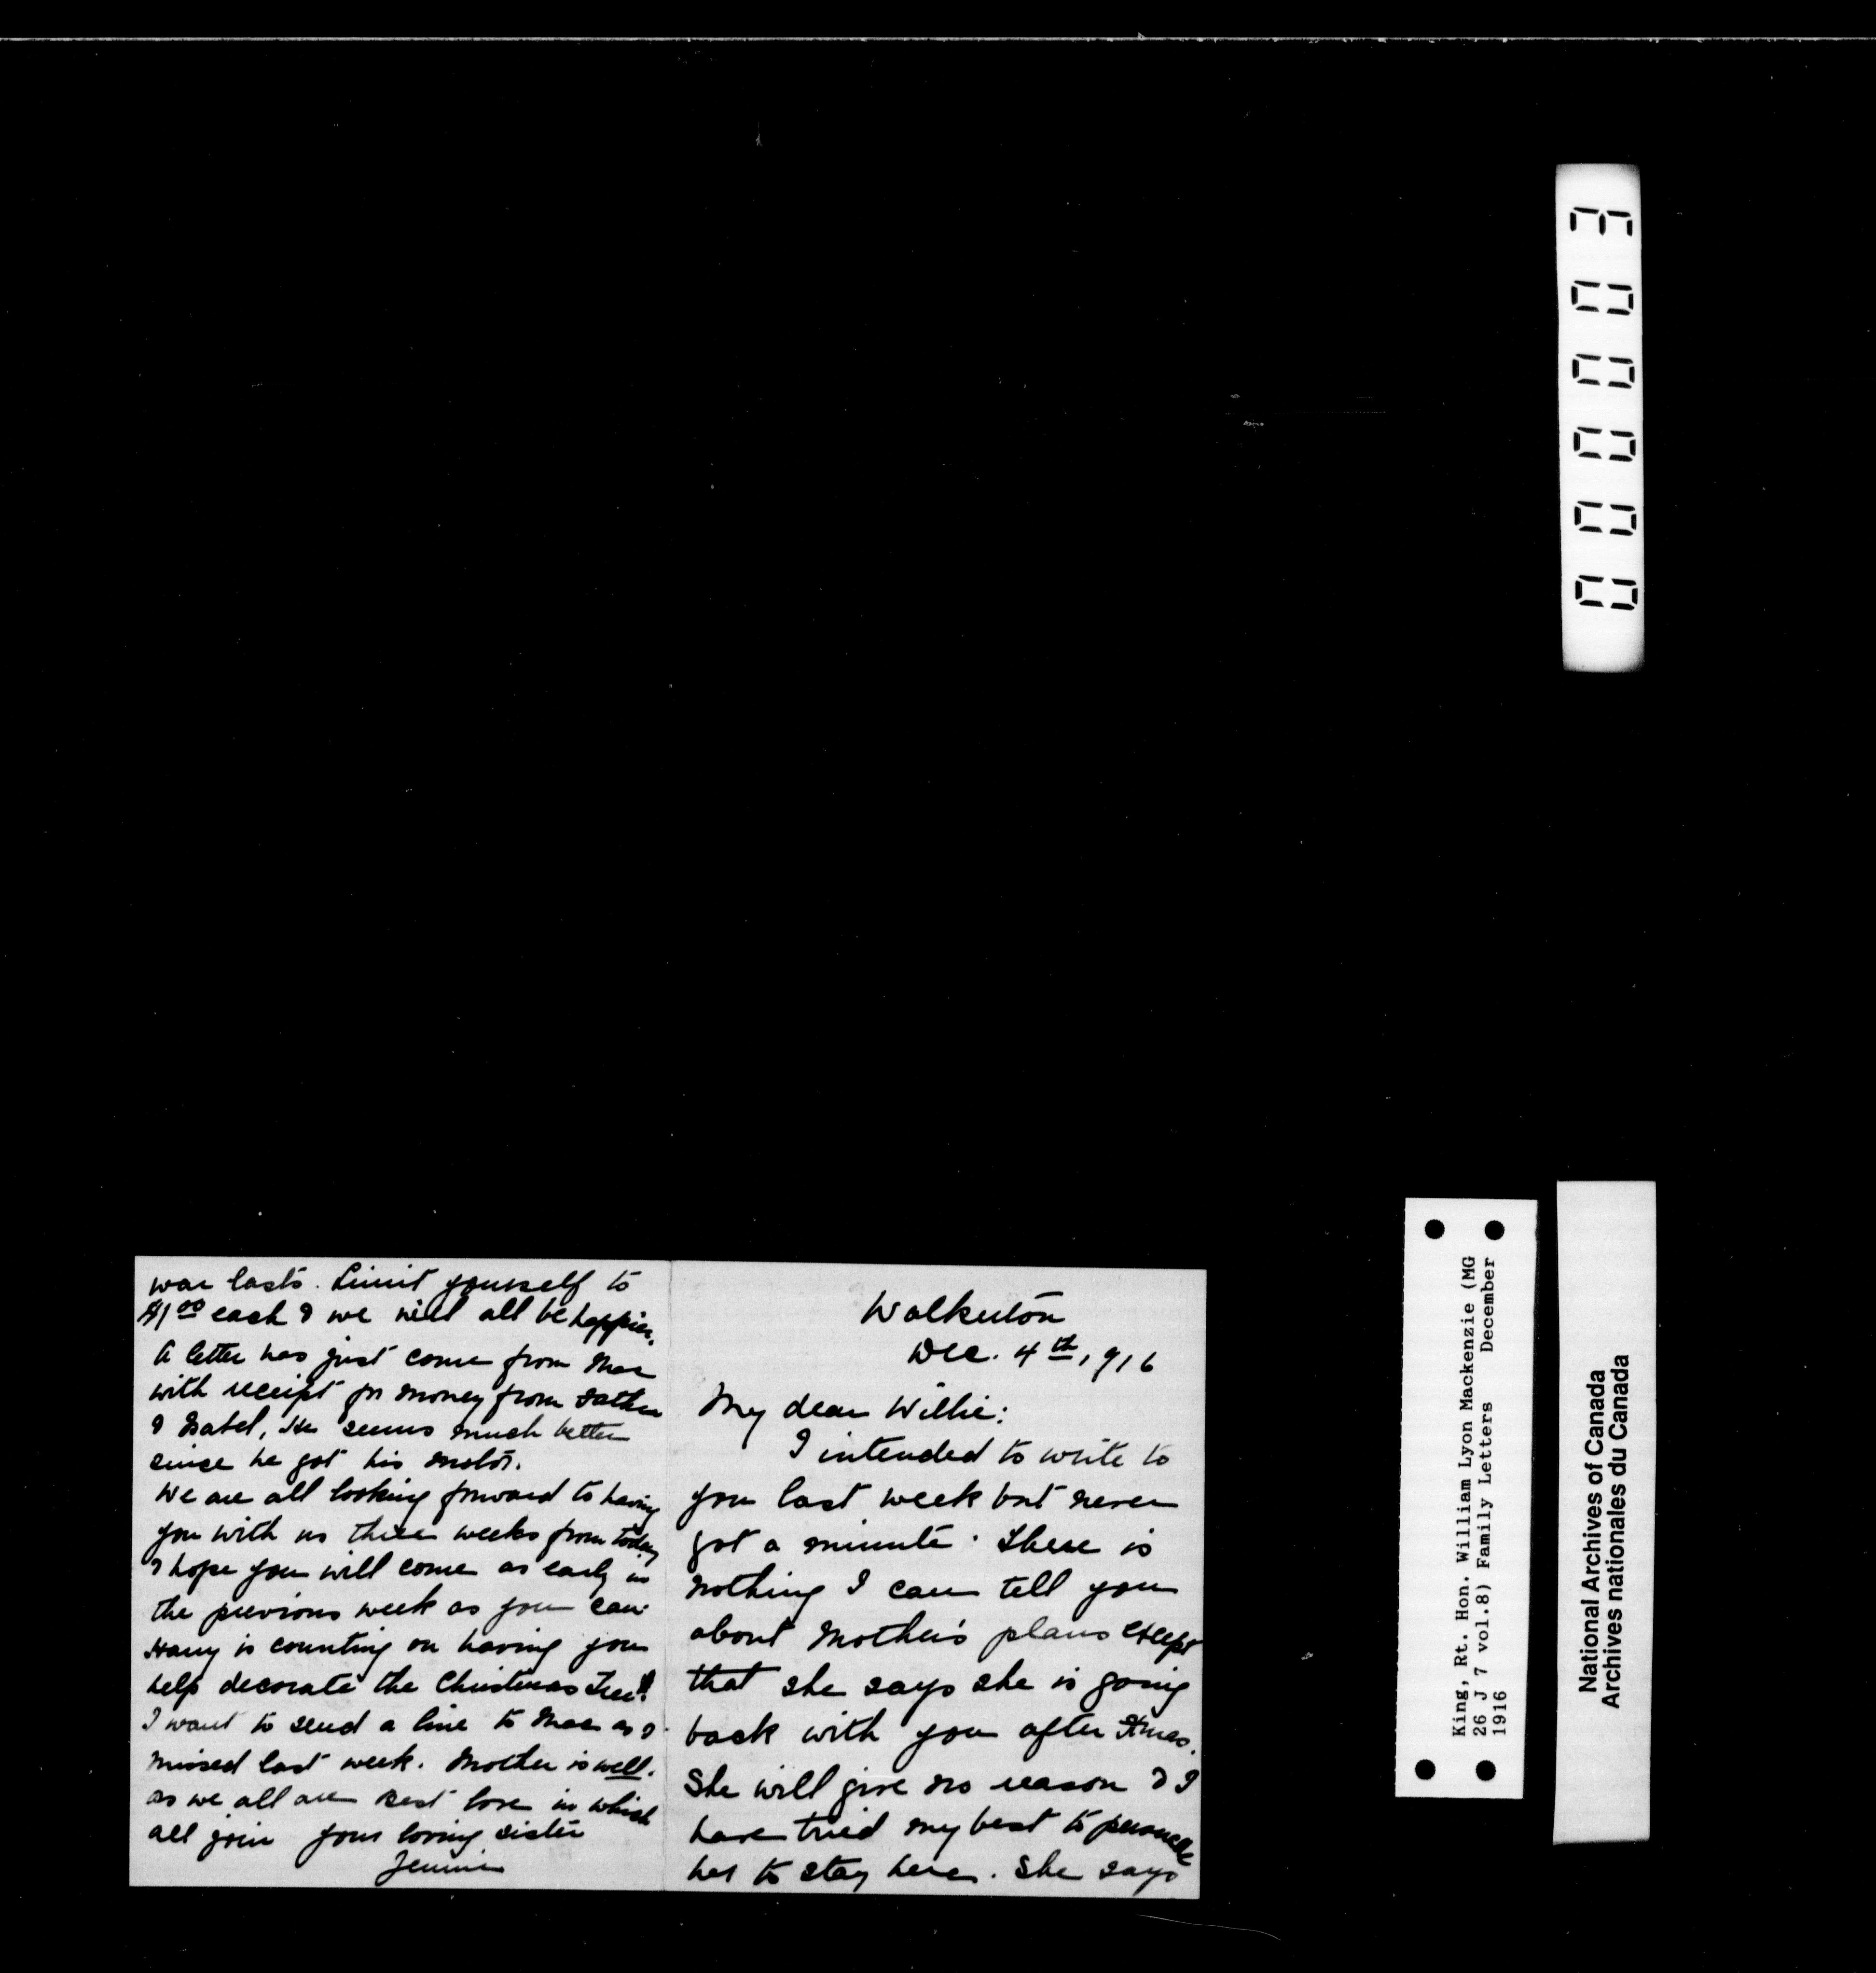 Walkerton
Dec. 4th, 1916
My dear Willie:
I intended to write to
you last week but never
got a minute. There is
nothing I can tell you
about Mother's plans except
that she says she is going
back with you after Xmas.
She will give no reason & I
have tried my best to persuade
her to stay here. She says
war lasts. Limit yourself to
$1 00 each & we will all be happier.
A letter has just come from Mac
with receipt for money from Father
& Isabel, He seems much better
since he got his motor.
We are all looking forward to having
you with us three weeks from today
& hope you will come as early in
the previous week as you can.
Harry is counting on having you
help decorate the Christmas Tree!!
I want to send a line to Mac as I
missed last week. Mother is well.
as we all are Best love in which
all join your loving sister
Jennie
000003
King, Rt. Hon. William Lyon Mackenzie (MG
26 J 7 vol.8) Family Letters December
1916
National Archives of Canada
Archives nationales du Canada